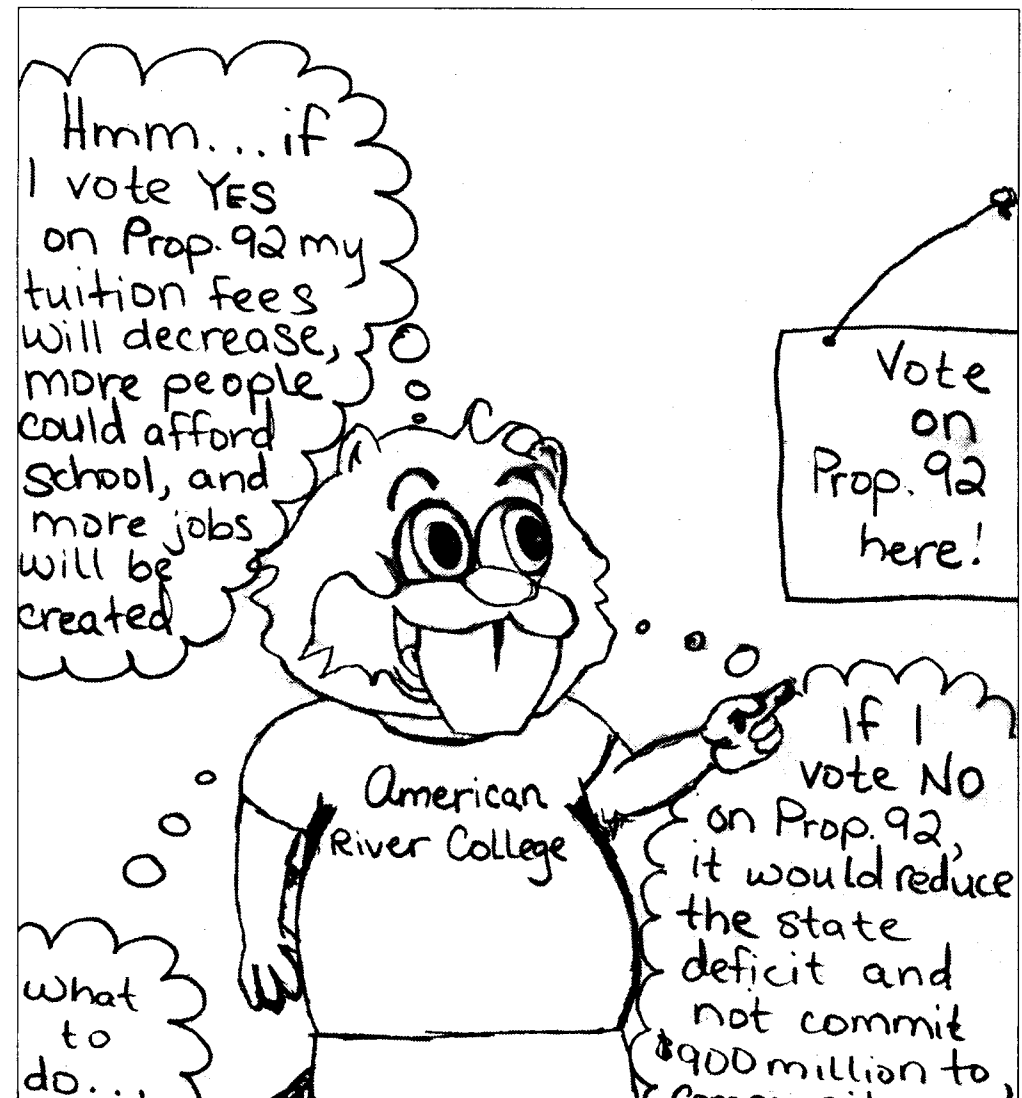 Hmm...if
I vote YES
on Prop. 92 my
tuition fees
will decrease,
more people
could afford
school, and
more jobs
will be
created
Vote
on
Prop. 92
here!
American
River College
If I
vote NO
on Prop. 92,
it would reduce
the state
deficit and
not commit
$900 million to
what
to
do...